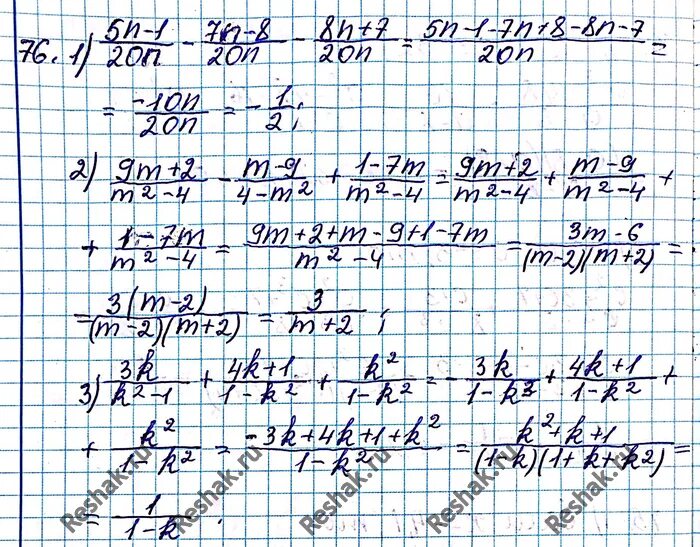 76. 1) (5n-1)/(20n) - (7n-8)/(20n) - (8n+7)/(20n) = (5n-1-7n+8-8n-7)/(20n) =
= (-10n)/(20n) = -1/2;
2) (9m+2)/(m²-4) - (m-9)/(4-m²) + (1-7m)/(m²-4) = (9m+2)/(m²-4) + (m-9)/(m²-4) +
+ (1-7m)/(m²-4) = (9m+2+m-9+1-7m)/(m²-4) = (3m-6)/((m-2)(m+2)) =
= (3(m-2))/((m-2)(m+2)) = 3/(m+2);
3) (3k)/(k²-1) + (4k+1)/(1-k²) + (k²)/(1-k²) = -(3k)/(1-k³) + (4k+1)/(1-k²) +
+ (k²)/(1-k²) = (-3k+4k+1+k²)/(1-k²) = (k²+k+1)/((1-k)(1+k+k²)) =
= 1/(1-k).
Reshak.ru
Reshak.ru
Reshak.ru
Reshak.ru
Reshak.ru
Reshak.ru